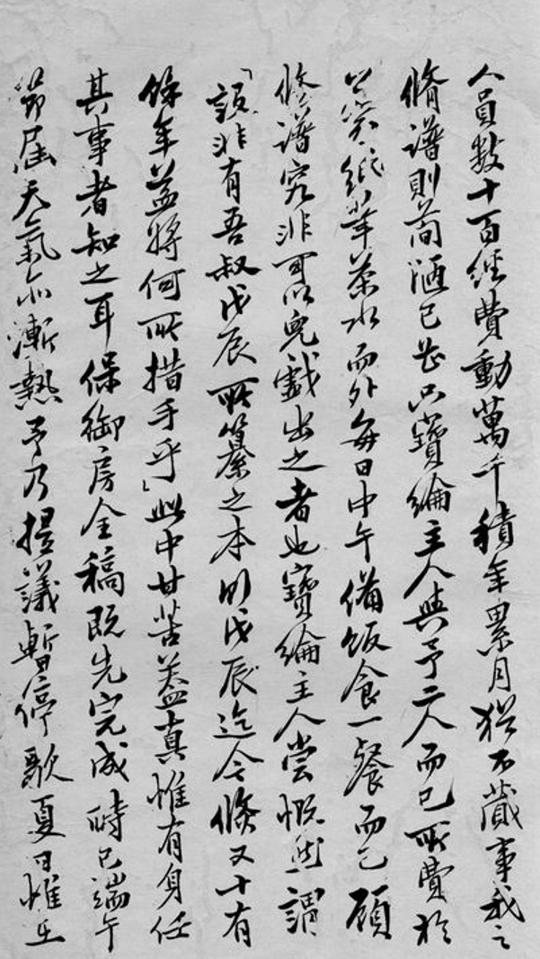 人員數十百經費動萬千積年累月猶不蕆事我之
脩譜則簡陋已甚只寶綸主人與予二人而已所費於
公眾紙筆茶水而外每日中午備飯食一餐而已顧
修譜究非可以兒戲出之者也寶綸主人嘗慨然謂
「設非有吾叔戊辰所纂之本則戊辰迄今倏又十有
餘年益將何所措手乎」此中甘苦蓋真惟有身任
其事者知之耳保御房全稿既先完成時已端午
節屆天氣亦漸熱予乃提議暫停歇夏可惟生